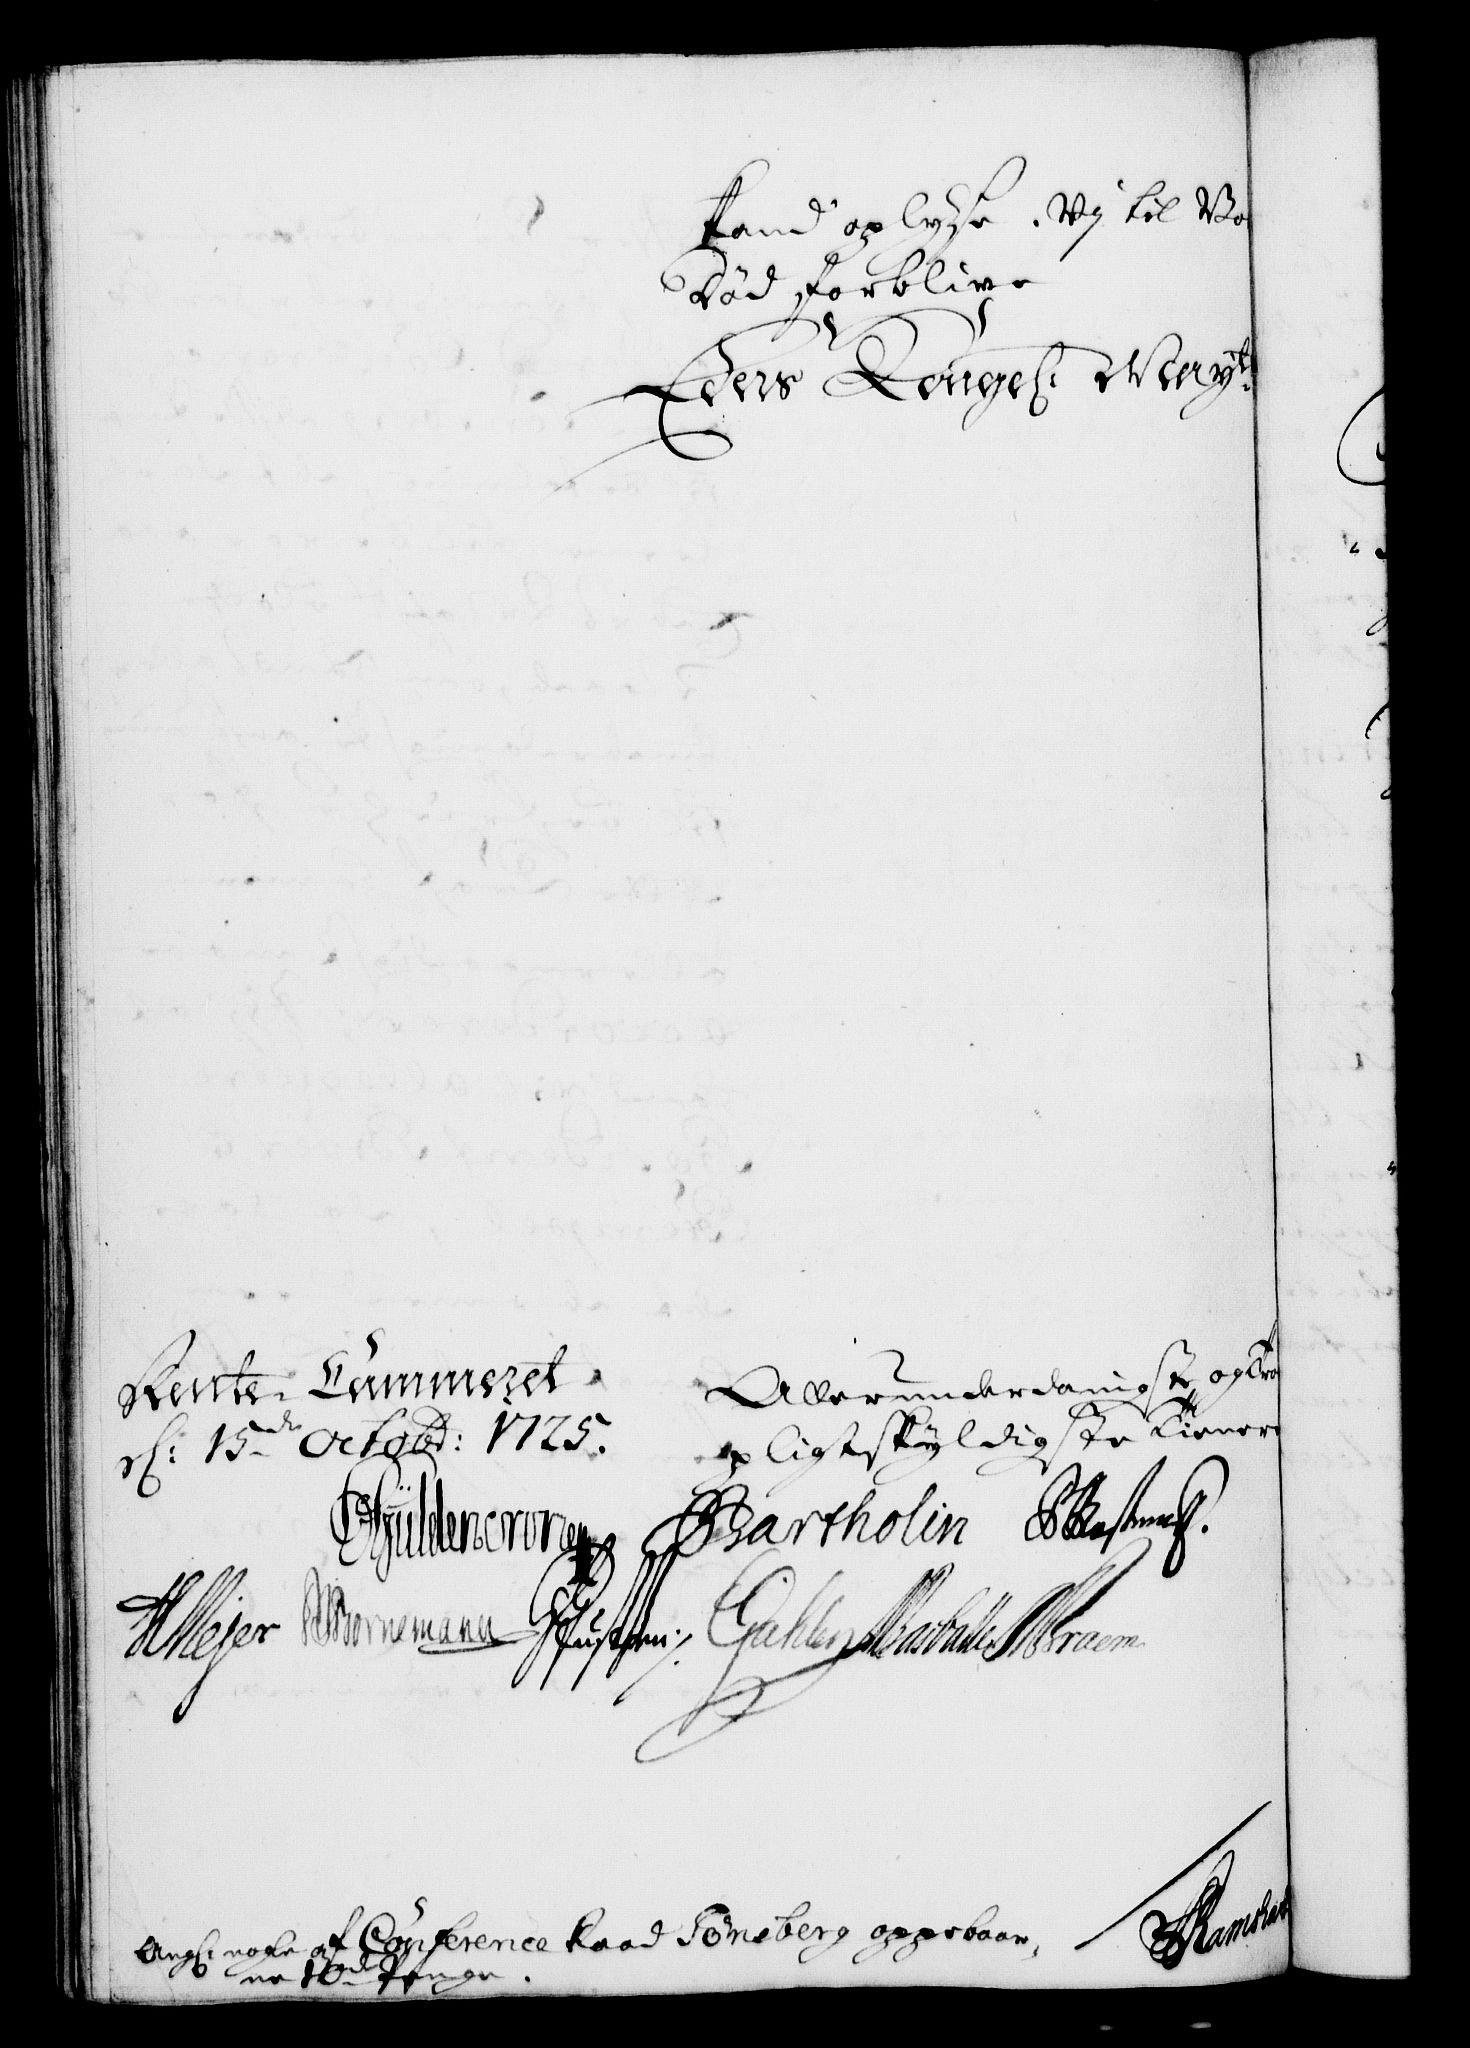 kand oplyse. Vy til Vo
Död forblive
Eders Kongel: May:t
Rente-Cammeret
d: 15de Octobr: 1725.
Allerunderdanigste og Tro
pligtskyldigste Tienere
Güldencrone Bartholin
HMejer Bornemann
Angl: nogle af Conference Raad Tönsberg oppebaar,
ne 10de Penge.
Ramshart